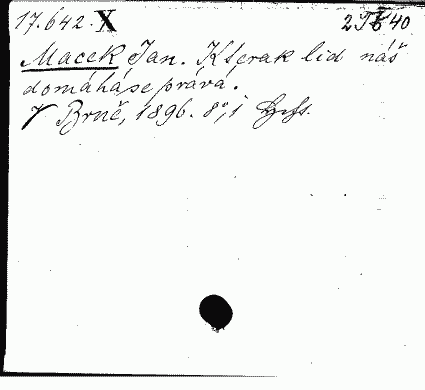 17.642. X 2 I 6 40
Macek Jan. Kterak lid náš
domáhá se práva.
V Brně, 1896. 8°, 1